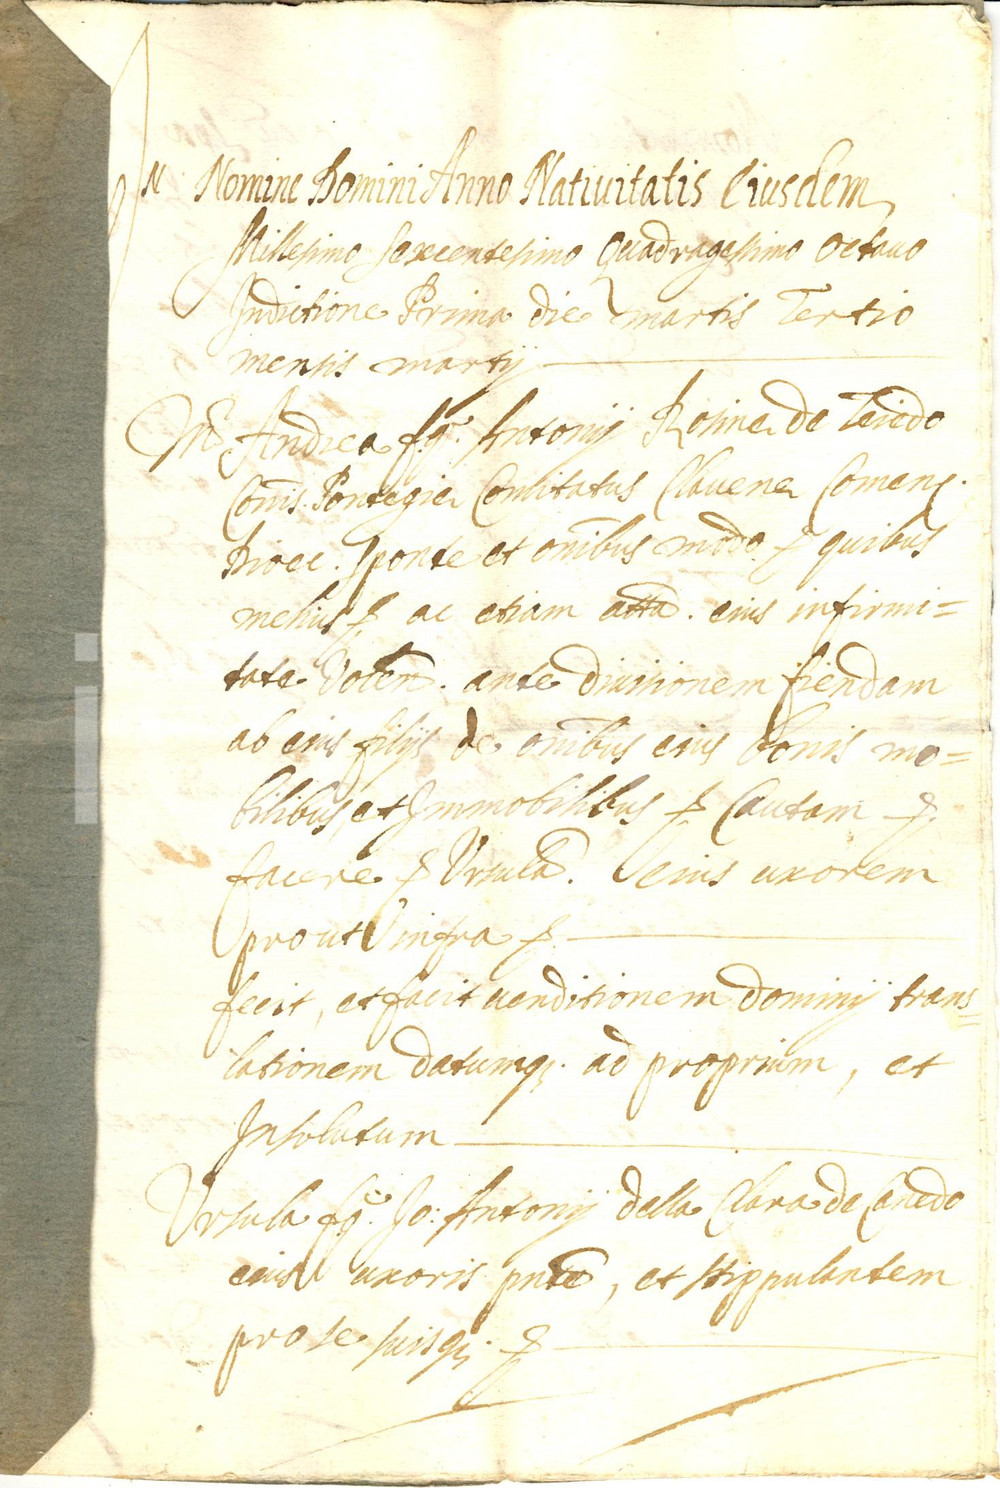 In Nomine Domini Anno Nativitatis Eiusdem
Millesimo sexcentesimo Quadragesimo octavo
Indictione Prima die martis Tertio
mensis martij
Mr Andrea fq. Antonij Rosine de Teiedo
Cōis Pontegie Comitatus Clavene Comens.
Dioec. sponte et omībus modo & quibus
melius & ac etiam atta. eius infirmi=
tate Volen. ante divisionem fiendam
ab eius filijs de omībus eius bonis mo=
bilibus, et Immobilibus & Cautam &.
facere & Ursulā. eius uxorem
prout infra &.
fecit, et facit venditionem dominij trans=
lationem datumq; ad proprium, et
Insolutum
Ursula fq. Jo: Antonij della Clara de Canedo
eius uxoris pntē, et stippulantem
pro se suisq; &